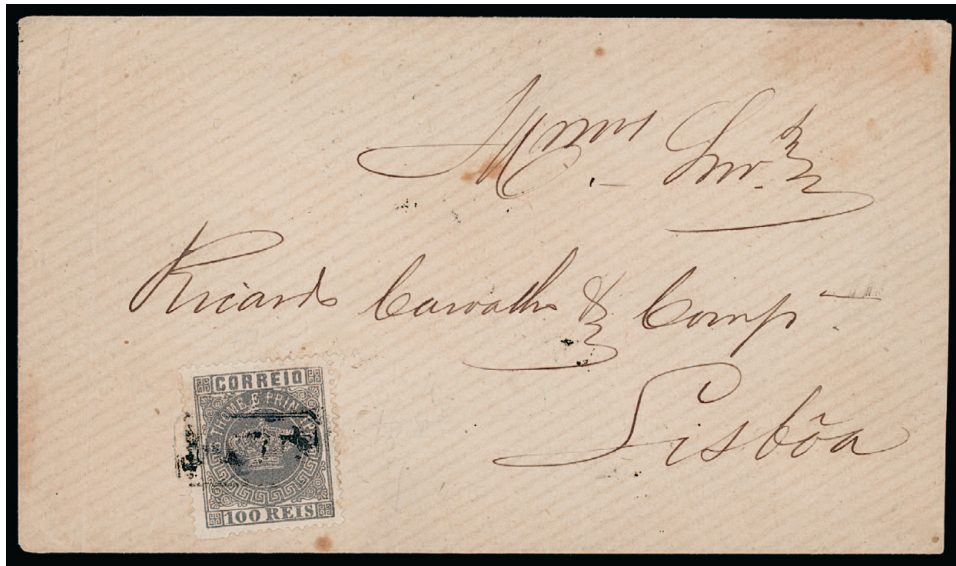 Snrs.
Ricardo Carvalho & Comp.
Lisbôa
CORREIO
S. THOMÉ E PRINCIPE
100 REIS